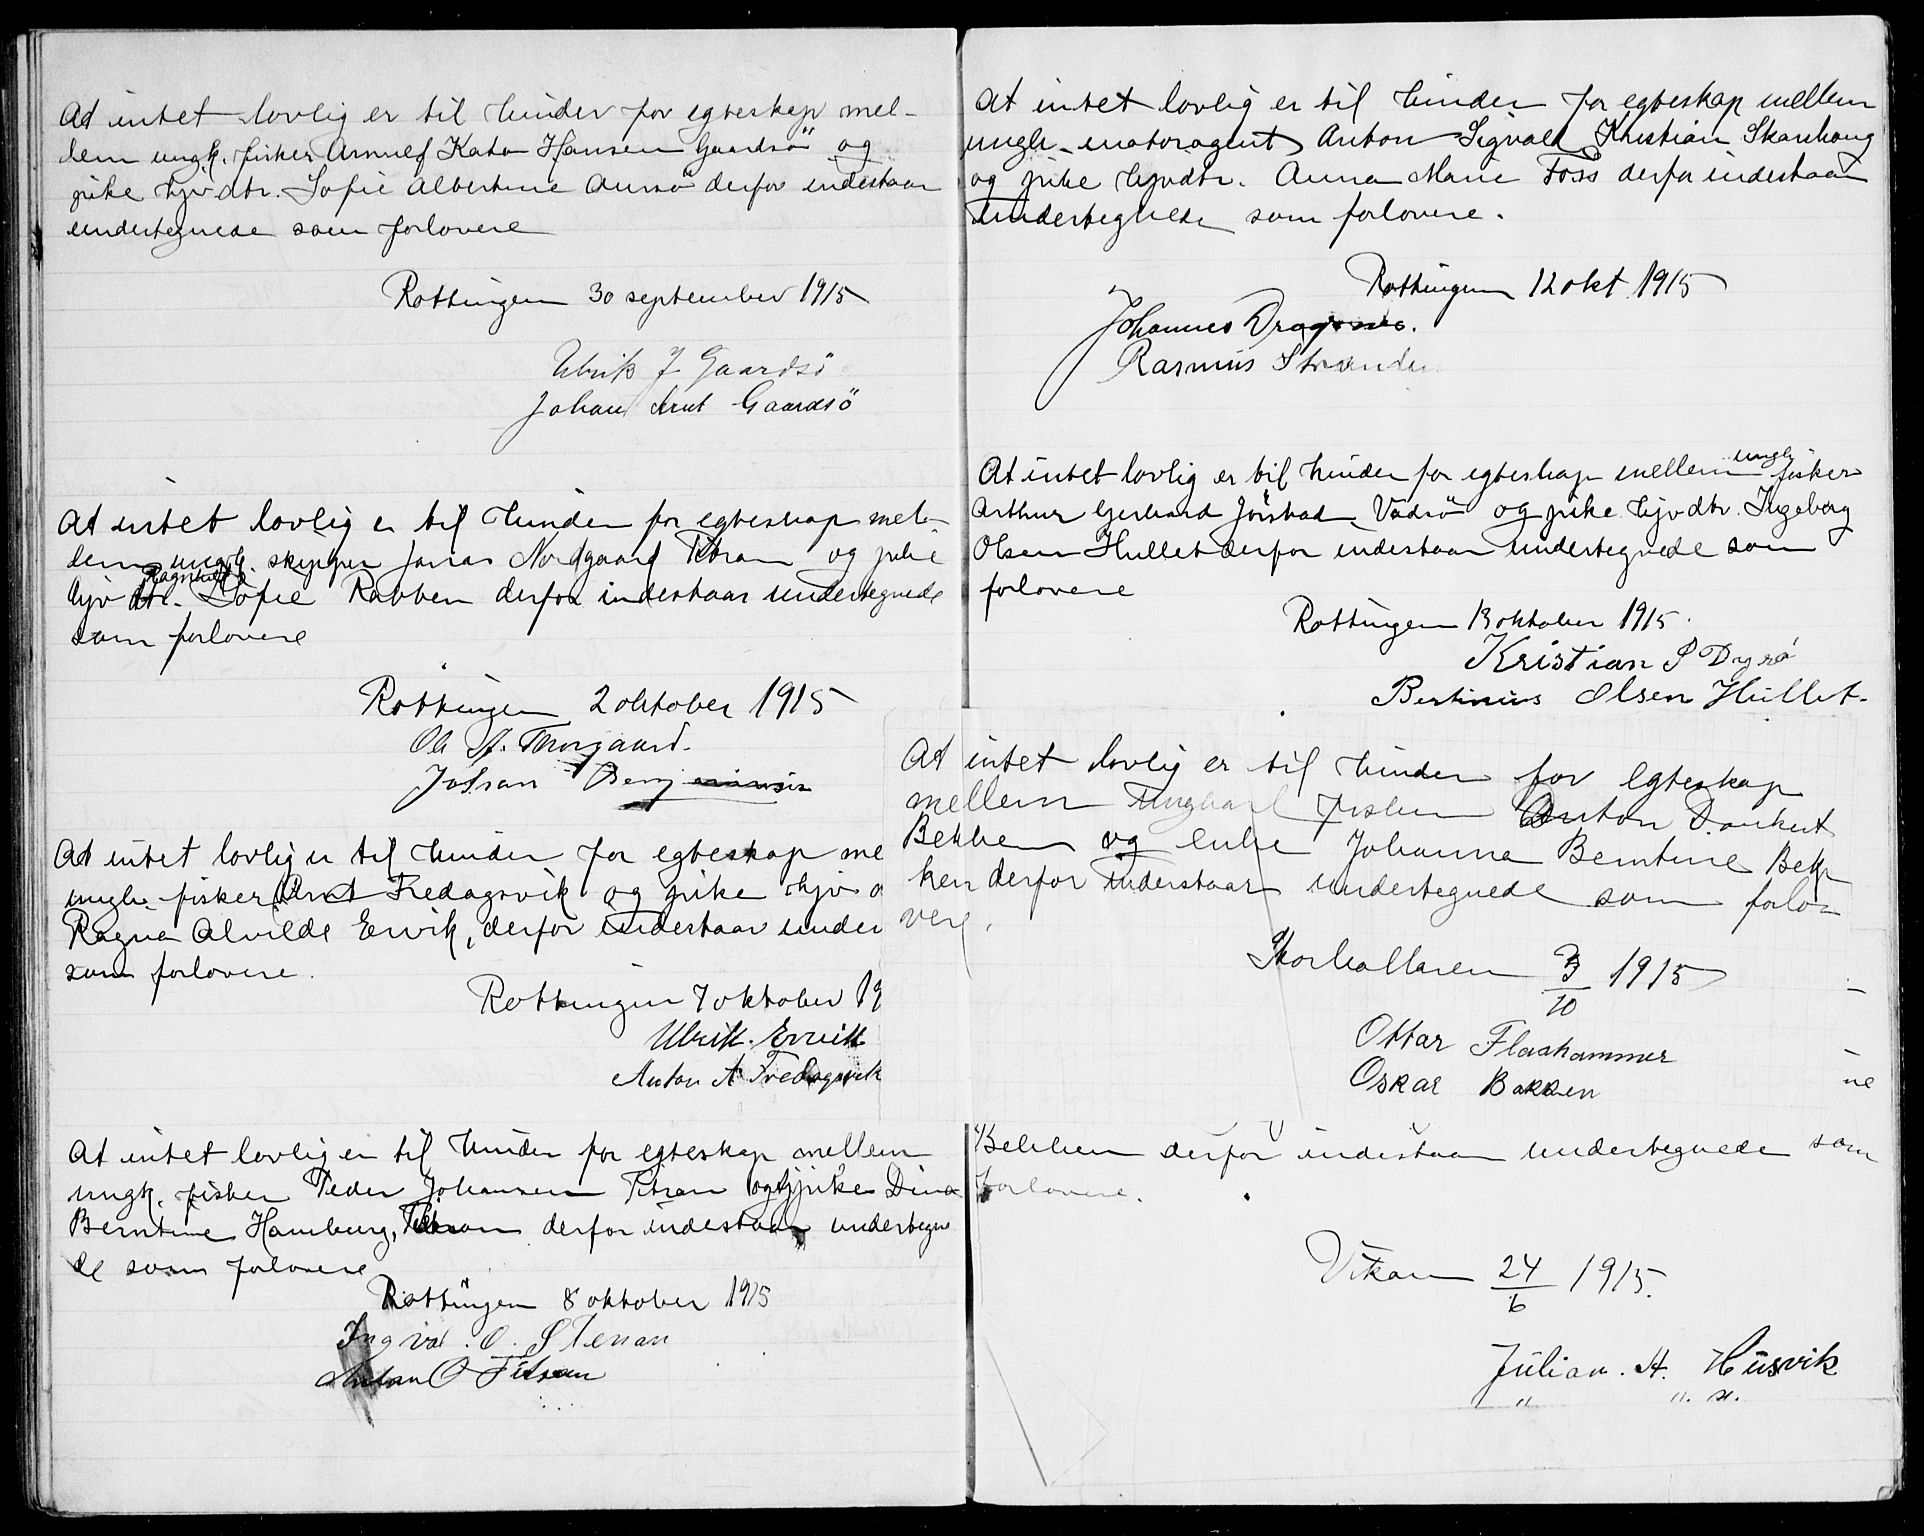 At intet lovlig er til hinder for egteskap mel-
lem ungk. fisker Arnulf Kato Hansen Gaardsö og
pike hjv dtr. Sofie Albertine Aursö derfor indestaar
undertegnede som forlovere
Rottingen 30 september 1915
Ulrik J Gaardsö
Johan Arnt Gaardsö
At intet lovlig er til hinder for egteskap mel-
lem ungk. skipper Jonas Nordgaard Titran og pike
Ragnhild
hjv dtr. Sofie Rabben derfor indestaar undertegnede
som forlovere
Rottingen 2 oktober 1915
Ole A. Thorgaard.
Johan Benjaminsen
At intet lovlig er til hinder for egteskap me
ungk. fisker Arnt Fredagsvik og pike hjv d
Ragna Alvilde Ervik, derfor indestaar under
som forlovere.
Rottingen 7 oktober 19
Ulrik. Ervik
Anton A Fredagsvik
At intet lovlig er til hinder for egteskap mellem
ungk. fisker Peder Johansen Titran og pike Dina
Berntine Hamburg, Titran derfor indestaar undertegne
de som forlovere
Rottingen 8 oktober 1915
Ingvar. O. Stenan
Anton O Titran
At intet lovlig er til hinder for egteskap mellem
ungk. motoragent Anton Sigvald Kristian Skarshaug
og pike hjvdtr. Anna Marie Foss derfor indestaar
undertegnede som forlovere.
Rottingen 12 okt 1915
Johannes Dragsnes.
Rasmus Stranden
At intet lovlig er til hinder for egteskap mellem ungk fisker
Arthur Gerhard Jörstad Vadsö og pike hjvdtr. Ingeborg
Olsen Hullet derfor indestaar undertegnede som
forlovere
Rottingen 13 oktober 1915.
Kristian P Dyrö
Bertinius Olsen Hullet.
At intet lovlig er til hinder for egteskap
mellem ungkarl fisker Anton Dankert
Bekken og enke Johanna Berntine Bek-
ken derfor inderstaar undertegnede som forlo-
vere.
Storhallaren 3/10 1915
Ottar Flashammer
Oskar Bakken
ne
Bekken derfor indestaar undertegnede som
forlovere.
Vikan 24/6 1915.
Julian. H. Husvik
" ". n.